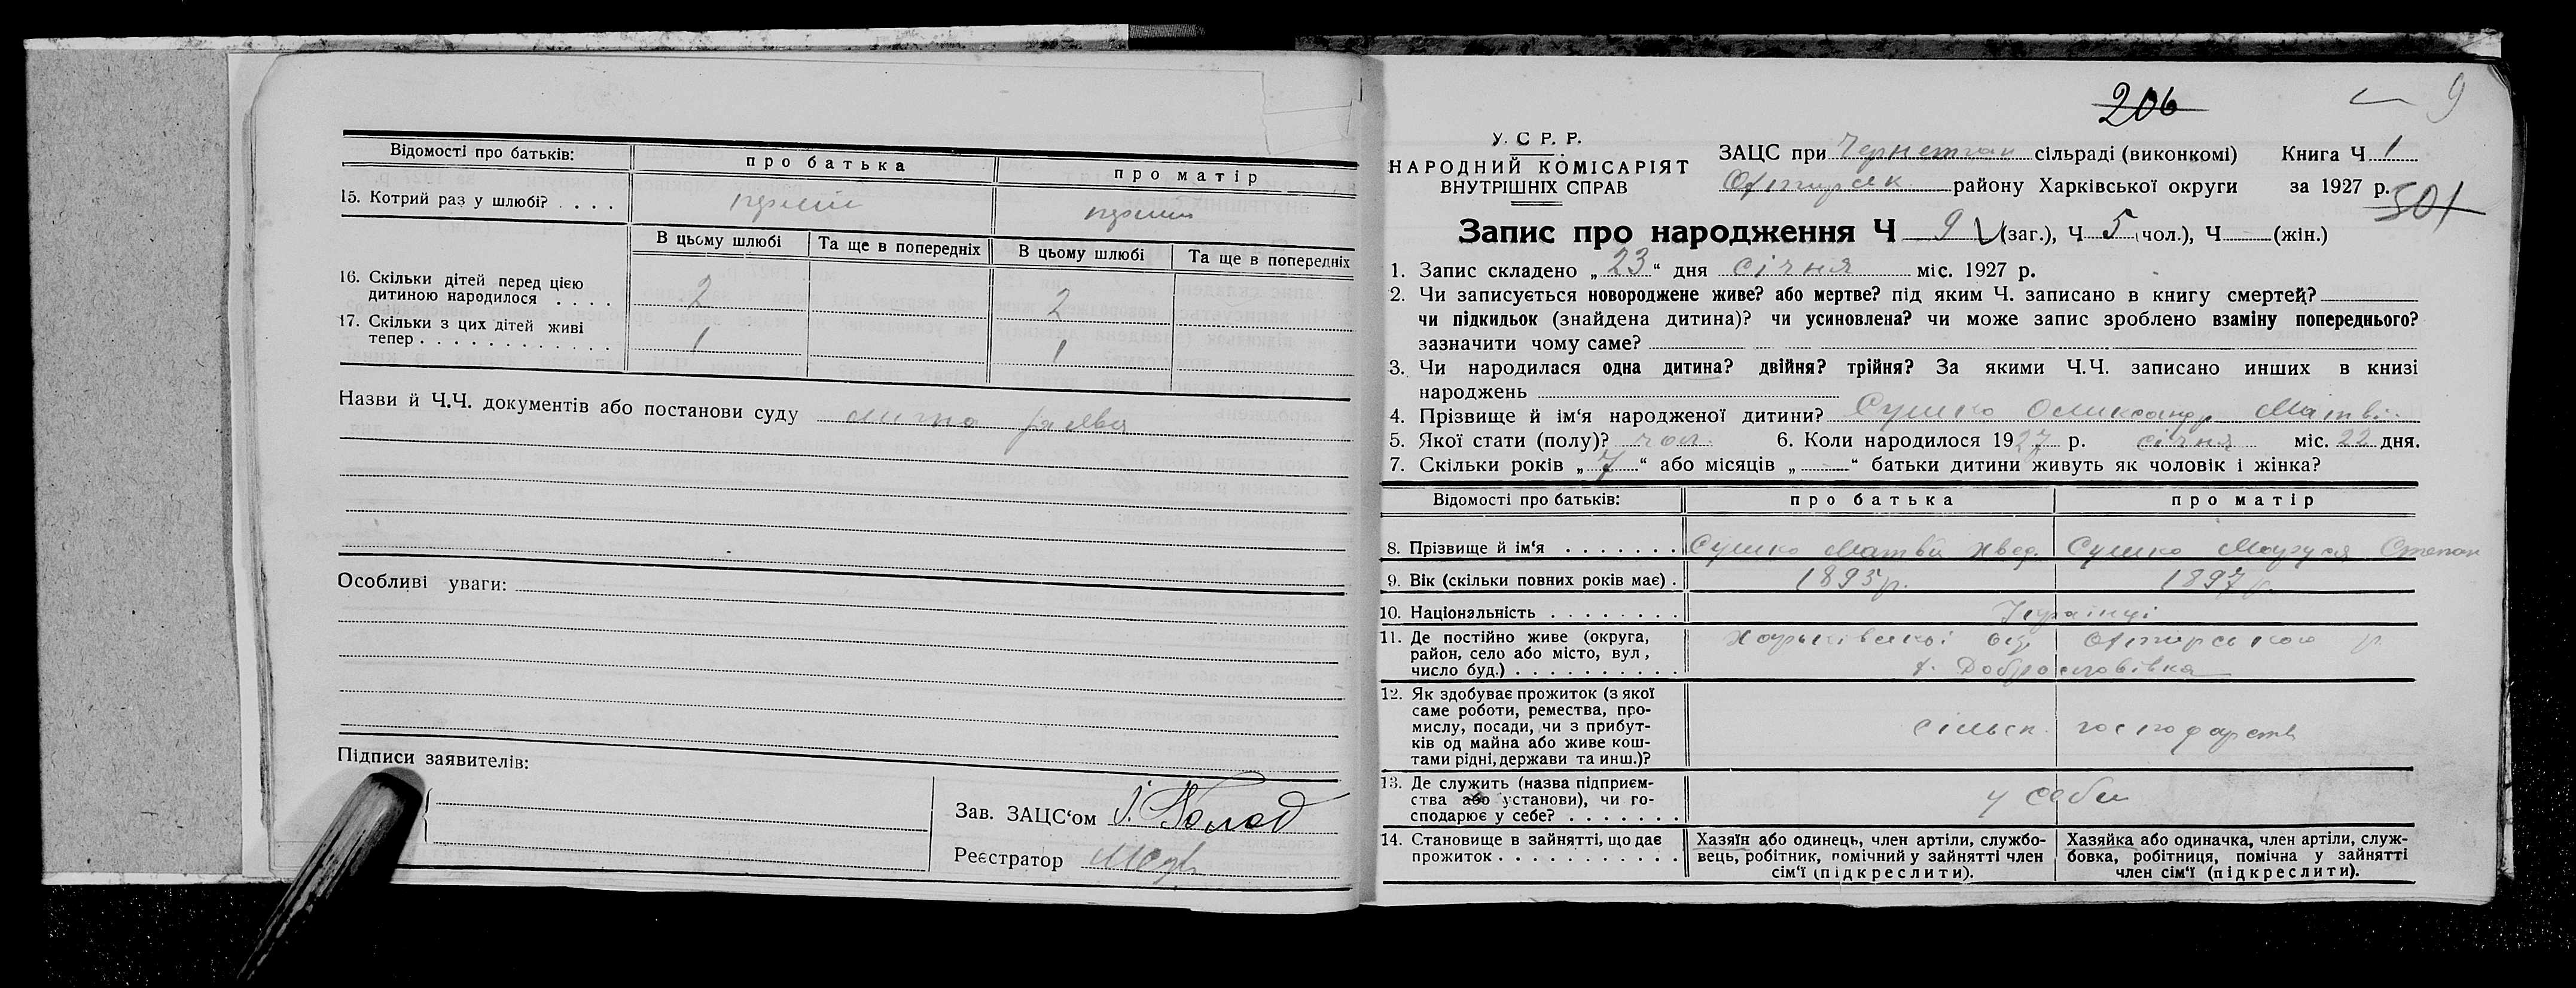 Відомості про батьків: про батька про матір
15. Котрий раз у шлюбі? . . . .
В цьому шлюбі Та ще в попередніх В цьому шлюбі Та ще в попередніх
16. Скільки дітей перед цією
дитиною народилося . . . . 2 2
17. Скільки з цих дітей живі
тепер . . . . . . . . . . . . 1 1
Назви й Ч.Ч. документів або постанови суду
Особливі уваги:
Підписи заявителів:
Зав. ЗАЦС‘ом
Реєстратор
206
9
У. С Р. Р.
НАРОДНИЙ КОМІСАРІЯТ
ВНУТРІШНІХ СПРАВ
ЗАЦС при сільраді (виконкомі) Книга Ч 1
району Харківської округи за 1927 р.
501
Запис про народження Ч 9 (заг.), Ч 5 (чол.), Ч (жін.)
1. Запис складено „ 23 “ дня січня міс. 1927 р.
2. Чи записується новороджене живе? або мертве? під яким Ч. записано в книгу смертей?
чи підкидьок (знайдена дитина)? чи усиновлена? чи може запис зроблено взаміну попереднього?
зазначити чому саме?
3. Чи народилася одна дитина? двійня? трійня? За якими Ч.Ч. записано инших в книзі
народжень
4. Прізвище й ім‘я народженої дитини? Сушко Олександр Матві.
5. Якої стати (полу)? чол. 6. Коли народилося 1927 р. січня міс. 22 дня.
7. Скільки років „ 7 “ або місяців „ “ батьки дитини живуть як чоловік і жінка?
Відомості про батьків: про батька про матір
8. Прізвище й ім‘я . . . . . . . Сушко Матвій Сушко Маруся Степан
9. Вік (скільки повних років має) . 1895р. 1897 р.
10. Національність . . . . . . . . Українці
11. Де постійно живе (округа,
район, село або місто, вул,
число буд.) . . . . . . . . . .
12. Як здобуває прожиток (з якої
саме роботи, ремества, про-
мислу, посади, чи з прибут-
ків од майна або живе кош-
тами рідні, держави та инш.)? сільск. господарств
13. Де служить (назва підприєм-
ства або установи), чи го-
сподарює у себе? . . . . . . . у себе
14. Становище в зайнятті, що дає
прожиток . . . . . . . . . . .
Хазяїн або одинець, член артіли, службо-
вець, робітник, помічний у зайнятті член
сім‘ї (підкреслити).
Хазяйка або одиначка, член артіли, служ-
бовка, робітниця, помічна у зайнятті
член сім‘ї (підкреслити).